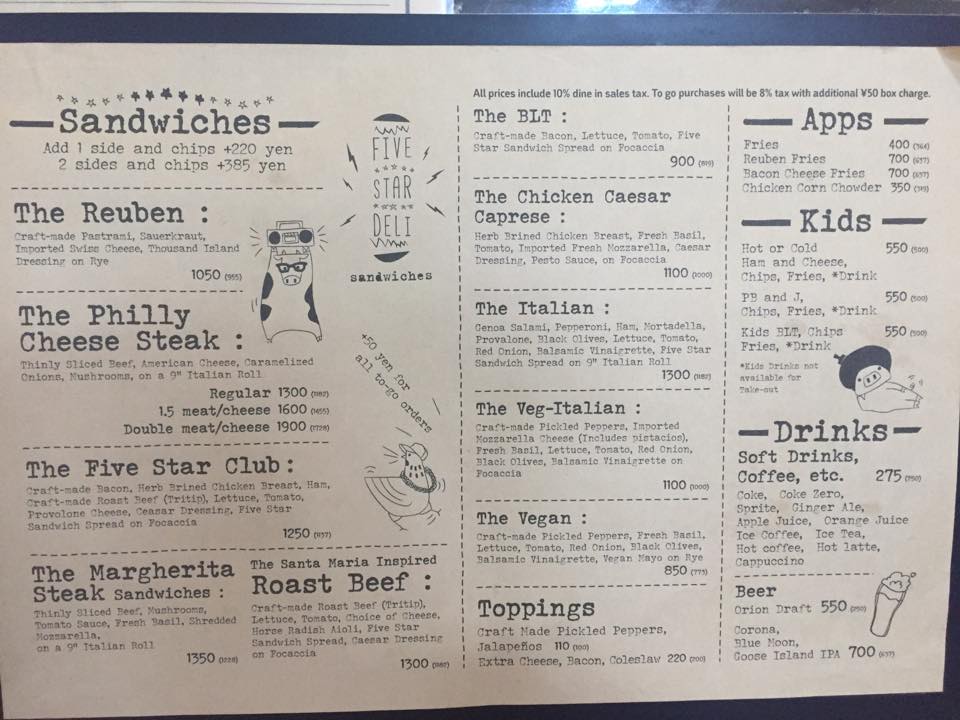 All prices include 10% dine in sales tax. To go purchases will be 8% tax with additional ¥50 box charge.
Sandwiches
Add 1 side and chips +220 yen
2 sides and chips +385 yen
FIVE
STAR
DELI
sandwiches
The Reuben :
Craft-made Pastrami, Sauerkraut,
Imported Swiss Cheese, Thousand Island
Dressing on Rye
1050 (955)
The Philly
Cheese Steak :
Thinly Sliced Beef, American Cheese, Caramelized
Onions, Mushrooms, on a 9" Italian Roll
Regular 1300 (1182)
1.5 meat/cheese 1600 (1455)
Double meat/cheese 1900 (1728)
+50 yen for
all to-go orders
The Five Star Club :
Craft-made Bacon, Herb Brined Chicken Breast, Ham,
Craft-made Roast Beef (Tritip), Lettuce, Tomato,
Provolone Cheese, Ceasar Dressing, Five Star
Sandwich Spread on Focaccia
1250 (1137)
The Margherita
Steak Sandwiches :
Thinly Sliced Beef, Mushrooms,
Tomato Sauce, Fresh Basil, Shredded
Mozzarella,
on a 9" Italian Roll
1350 (1228)
The Santa Maria Inspired
Roast Beef :
Craft-made Roast Beef (Tritip),
Lettuce, Tomato, Choice of Cheese,
Horse Radish Aioli, Five Star
Sandwich Spread, Caesar Dressing
on Focaccia
1300 (1182)
The BLT :
Craft-made Bacon, Lettuce, Tomato, Five
Star Sandwich Spread on Focaccia
900 (819)
The Chicken Caesar
Caprese :
Herb Brined Chicken Breast, Fresh Basil,
Tomato, Imported Fresh Mozzarella, Caesar
Dressing, Pesto Sauce, on Focaccia
1100 (1000)
The Italian :
Genoa Salami, Pepperoni, Ham, Mortadella,
Provalone, Black Olives, Lettuce, Tomato,
Red Onion, Balsamic Vinaigrette, Five Star
Sandwich Spread on 9" Italian Roll
1300 (1182)
The Veg-Italian :
Craft-made Pickled Peppers, Imported
Mozzarella Cheese (Includes pistacios),
Fresh Basil, Lettuce, Tomato, Red Onion,
Black Olives, Balsamic Vinaigrette on
Focaccia
1100 (1000)
The Vegan :
Craft-made Pickled Peppers, Fresh Basil,
Lettuce, Tomato, Red Onion, Black Olives,
Balsamic Vinaigrette, Vegan Mayo on Rye
850 (773)
Toppings
Craft Made Pickled Peppers,
Jalapeños 110 (100)
Extra Cheese, Bacon, Coleslaw 220 (200)
Apps
Fries 400 (364)
Reuben Fries 700 (637)
Bacon Cheese Fries 700 (637)
Chicken Corn Chowder 350 (319)
Kids
Hot or Cold 550 (500)
Ham and Cheese,
Chips, Fries, *Drink
PB and J, 550 (500)
Chips, Fries, *Drink
Kids BLT, Chips 550 (500)
Fries, *Drink
*Kids Drinks not
available for
Take-out
Drinks
Soft Drinks,
Coffee, etc. 275 (250)
Coke, Coke Zero,
Sprite, Ginger Ale,
Apple Juice, Orange Juice
Ice Coffee, Ice Tea,
Hot coffee, Hot latte,
Cappuccino
Beer
Orion Draft 550
Corona,
Blue Moon,
Goose Island IPA 700 (637)